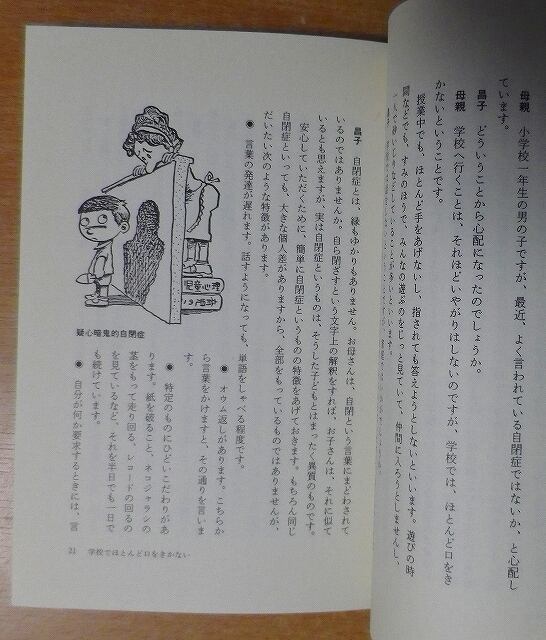 母親　小学校一年生の男の子ですが、最近、よく言われている自閉症ではないか、と心配し
ています。
昌子　どういうことから心配になったのでしょうか。
母親　学校へ行くことは、それほどいやがりはしないのですが、学校では、ほとんど口をき
かないということです。
授業中でも、ほとんど手をあげないし、指されても答えようとしないといいます。遊びの時
間などでも、すみのほうで、みんなの遊ぶのをじっと見ていて、仲間に入ろうとしませんし、
昌子　自閉症とは、縁もゆかりもありません。お母さんは、自閉という言葉にまどわされて
いるのではありませんか。自ら閉ざすという文字上の解釈をすれば、お子さんは、それに似て
いるとも思えますが、実は自閉症というものは、そうした子どもとはまったく異質のものです。
安心していただくために、簡単に自閉症というものの特徴をあげておきます。もちろん同じ
自閉症といっても、大きな個人差がありますから、全部をもっているものではありませんが、
だいたい次のような特徴があります。
● 言葉の発達が遅れます。話すようになっても、単語をしゃべる程度です。
● オウム返しがあります。こちらか
ら言葉をかけますと、その通りを言いま
す。
● 特定のものにひどいこだわりがあ
ります。紙を破ること、ネコジャラシの
茎をもって走り回る、レコードの回るの
を見ているなど、それを半日でも一日で
も続けています。
● 自分が何か要求するときには、言
児童心理
疑心暗鬼的自閉症
21　学校でほとんど口をきかない